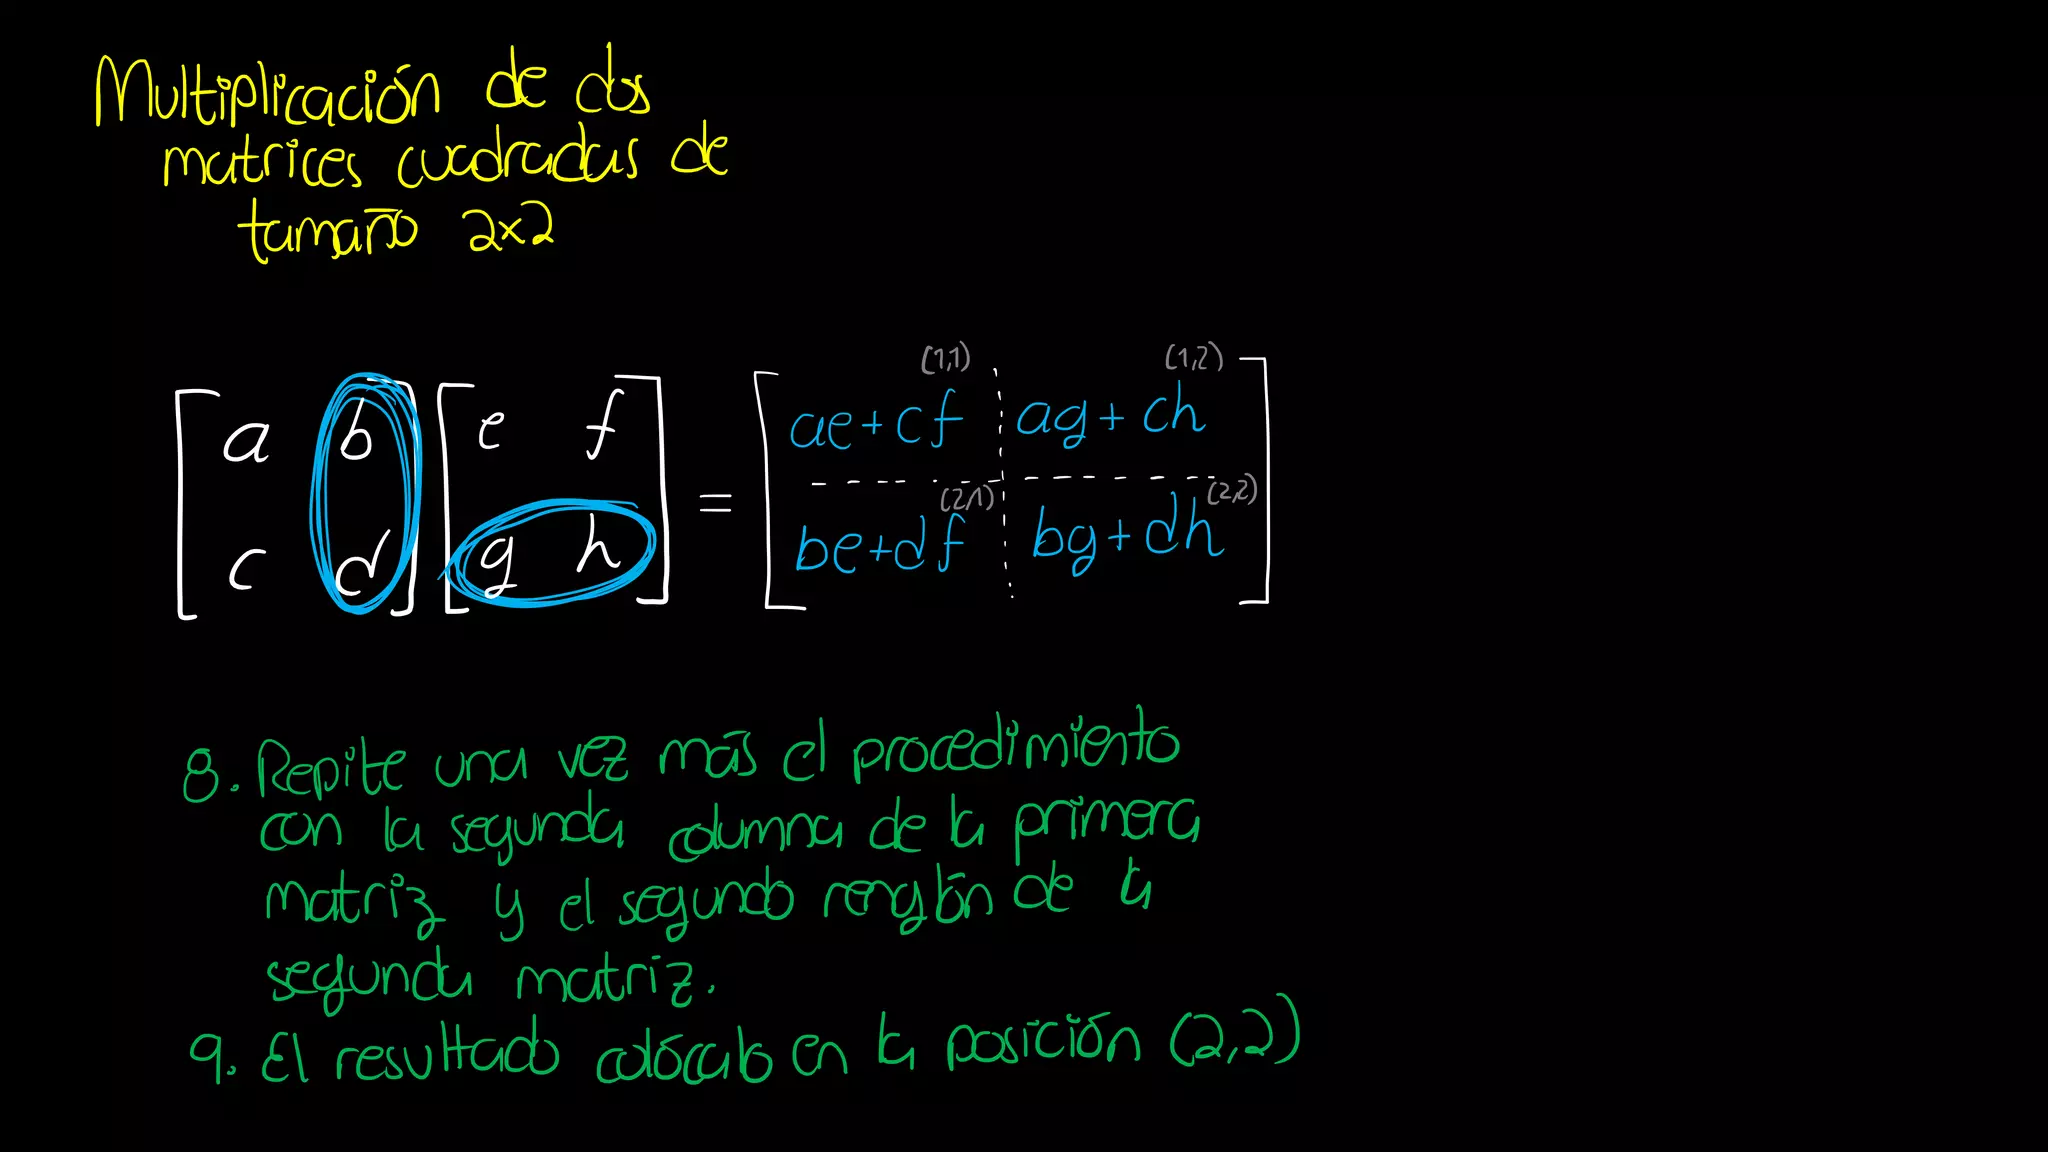 Multiplicación de dos
matrices cuadradas de
tamaño 2x2
(1,1) (1,2)
a b e f ae+cf ag+ch
=
(2,1) (2,2)
c d g h be+df bg+dh
8. Repite una vez más el procedimiento
con la segunda columna de la primera
matriz y el segundo renglón de la
segunda matriz.
9. El resultado colócalo en la posición (2,2)